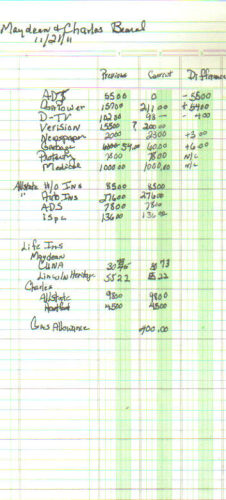 Maydean & Charles
11/21/11
Previous Current Difference
ADT 5500 0 - 5500
15700 211 00 + 5400
D-TV 10200 98 — - 400
Verision 15500 ? 200 00
Newspaper 2000 2300 + 3 00
Garbage 54 00 6000 + 6 00
7800 7800 N/C
Medical 1000 00 1000.00 N/C
Allstate H/O Ins 8500 8500
" Auto Ins 27600 27600
ADS 7800 7800
136 00 136 00
Life Ins
Maydean
CUNA 30 73
Lincoln Heritage 5522 22
Charles
Allstate 9800 9800
4500 4500
Gas Allowance 400.00